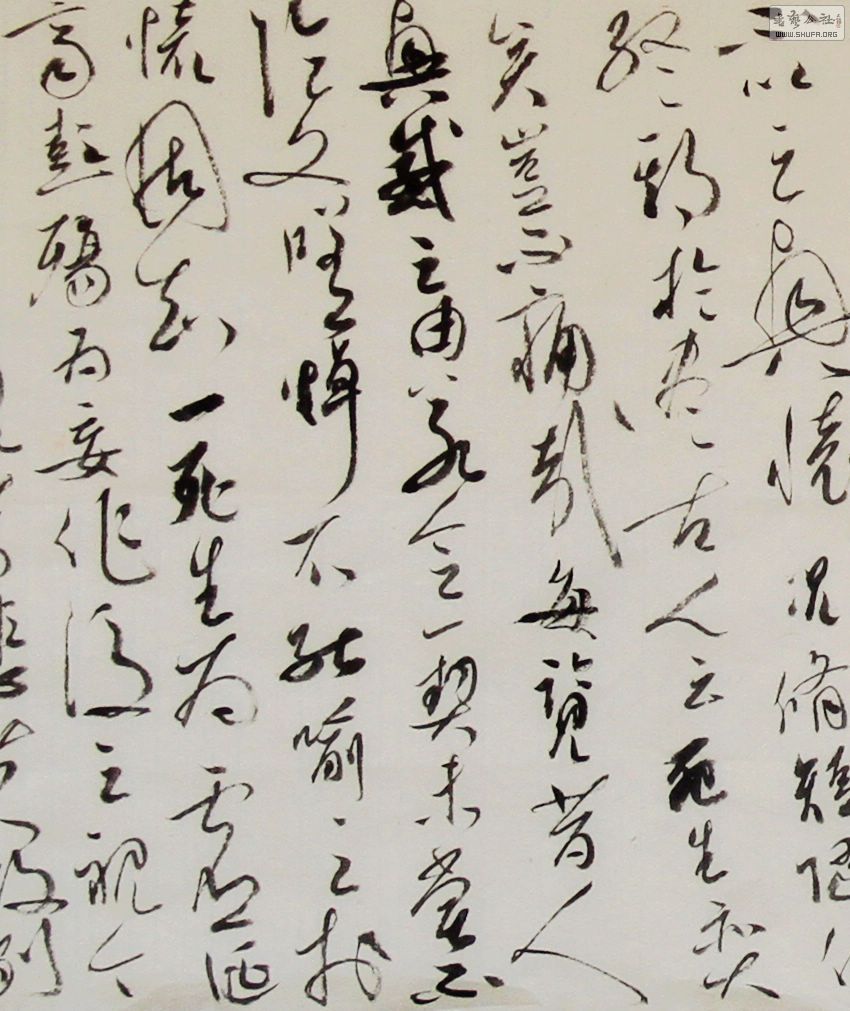 書藝公社
WWW.SHUFA.ORG
不以之興懷況脩短隨化
終期於盡古人云死生亦大
矣豈不痛哉每覽昔人
興感之由若合一契未嘗不
臨文嗟悼不能喻之於
懷固知一死生為虛誕
齊彭殤為妄作後之視今